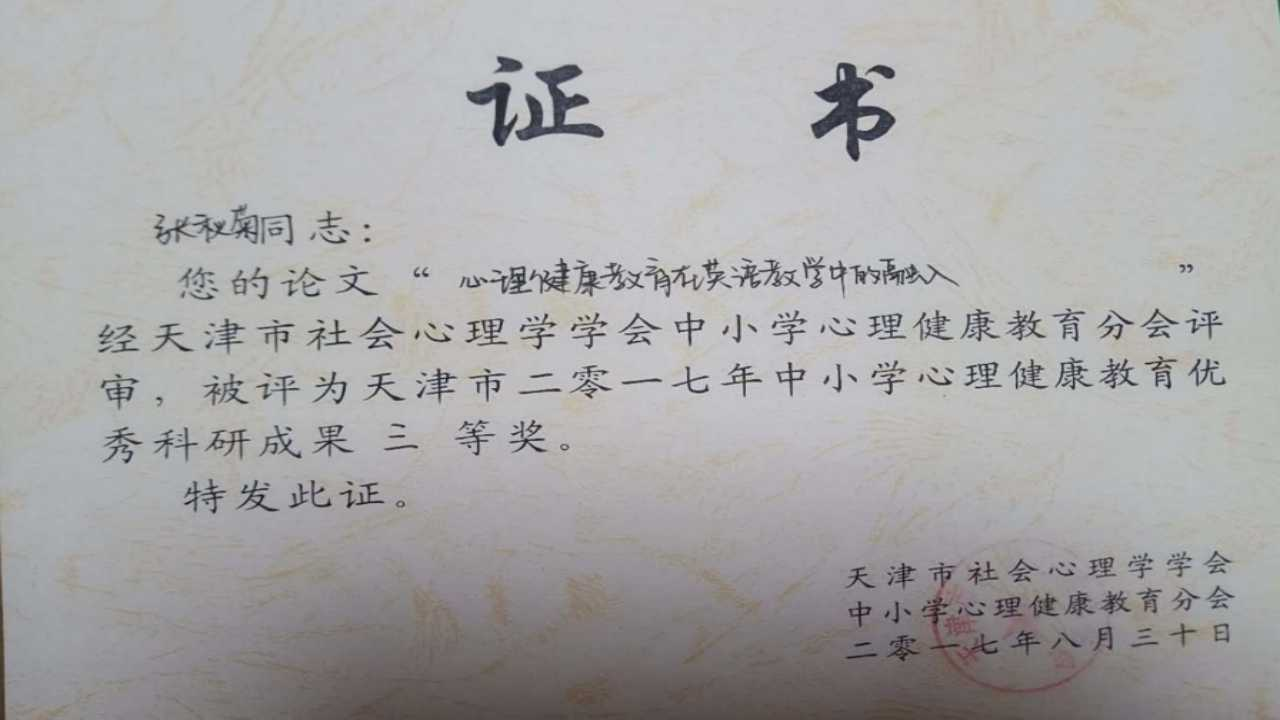 证 书
张秋菊同志：
您的论文“心理健康教育在英语教学中的融入”
经天津市社会心理学学会中小学心理健康教育分会评
审，被评为天津市二零一七年中小学心理健康教育优
秀科研成果 三 等奖。
特发此证。
天津市社会心理学学会
中小学心理健康教育分会
二零一七年八月三十日